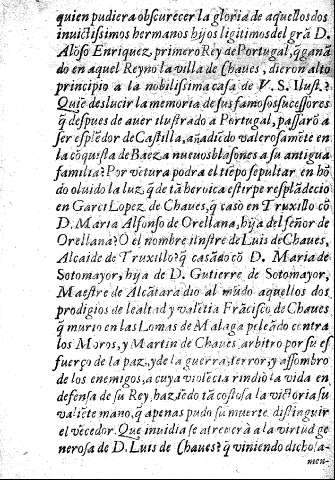 quien pudiera obscurecer la gloria de aquellos dos
inuictissimos hermanos hijos ligitimos del grã D.
Alõso Enriquez, primero Rey de Portugal, q̃ ganã
do en aquel Reyno la villa de Chaues, dieron alto
principio a la nobilissima casa de V. S. Ilust.?
Quiẽ deslucir la memoria de sus famosos sucessores
q̃ despues de auer ilustrado a Portugal, passarõ a
ser esplẽdor de Castilla, añadiẽdo valerosamẽte en
la cõquista de Baeza nueuos blasones a su antigua
familia? Por vẽtura podra el tiẽpo sepultar en hõ
do oluido la luz, q̃ de tã heroica estirpe resplãdecio
en Garci Lopez de Chaues, q̃ casò en Truxillo cõ
D. Maria Alfonso de Orellana, hija del señor de
Orellana? O el nombre ilustre de Luis de Chaues,
Alcaide de Truxillo? q̃ casãdo cõ D. Maria de
Sotomayor, hija de D. Gutierre de Sotomayor,
Maestre de Alcãtara dio al mũdo aquellos dos
prodigios de lealtad y valẽtia Frãcisco de Chaues
q̃ murio en las Lomas de Malaga peleãdo contra
los Moros, y Martin de Chaues arbitro por su es
fuerço de la paz, y de la guerra, terror, y assombro
de los enemigos, a cuya violẽcia rindiò la vida en
defensa de su Rey, haziẽdo tã costosa la victoria su
valiẽte mano, q̃ apenas pudo su muerte distinguir
el vẽcedor. Que inuidia se atreuerà a la virtud ge
nerosa de D. Luis de Chaues? q̃ viniendo dichosa-
men-